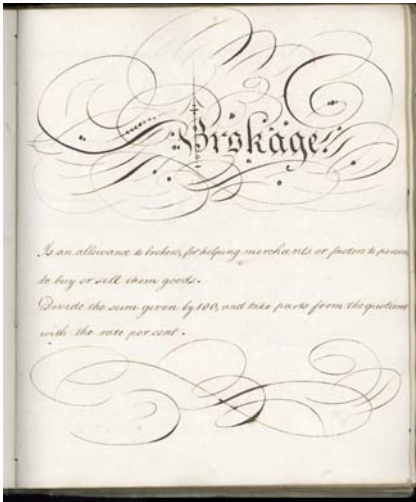 Brokage.
Is an allowance to brokers, for helping merchants or factors to persons
to buy or sell them goods.
Divide the sum given by 100, and take parts from the quotient
with the rate per cent.